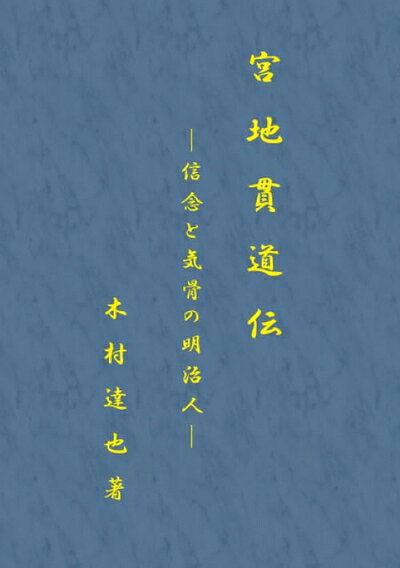 宮地貫道伝
―信念と気骨の明治人―
木村達也著